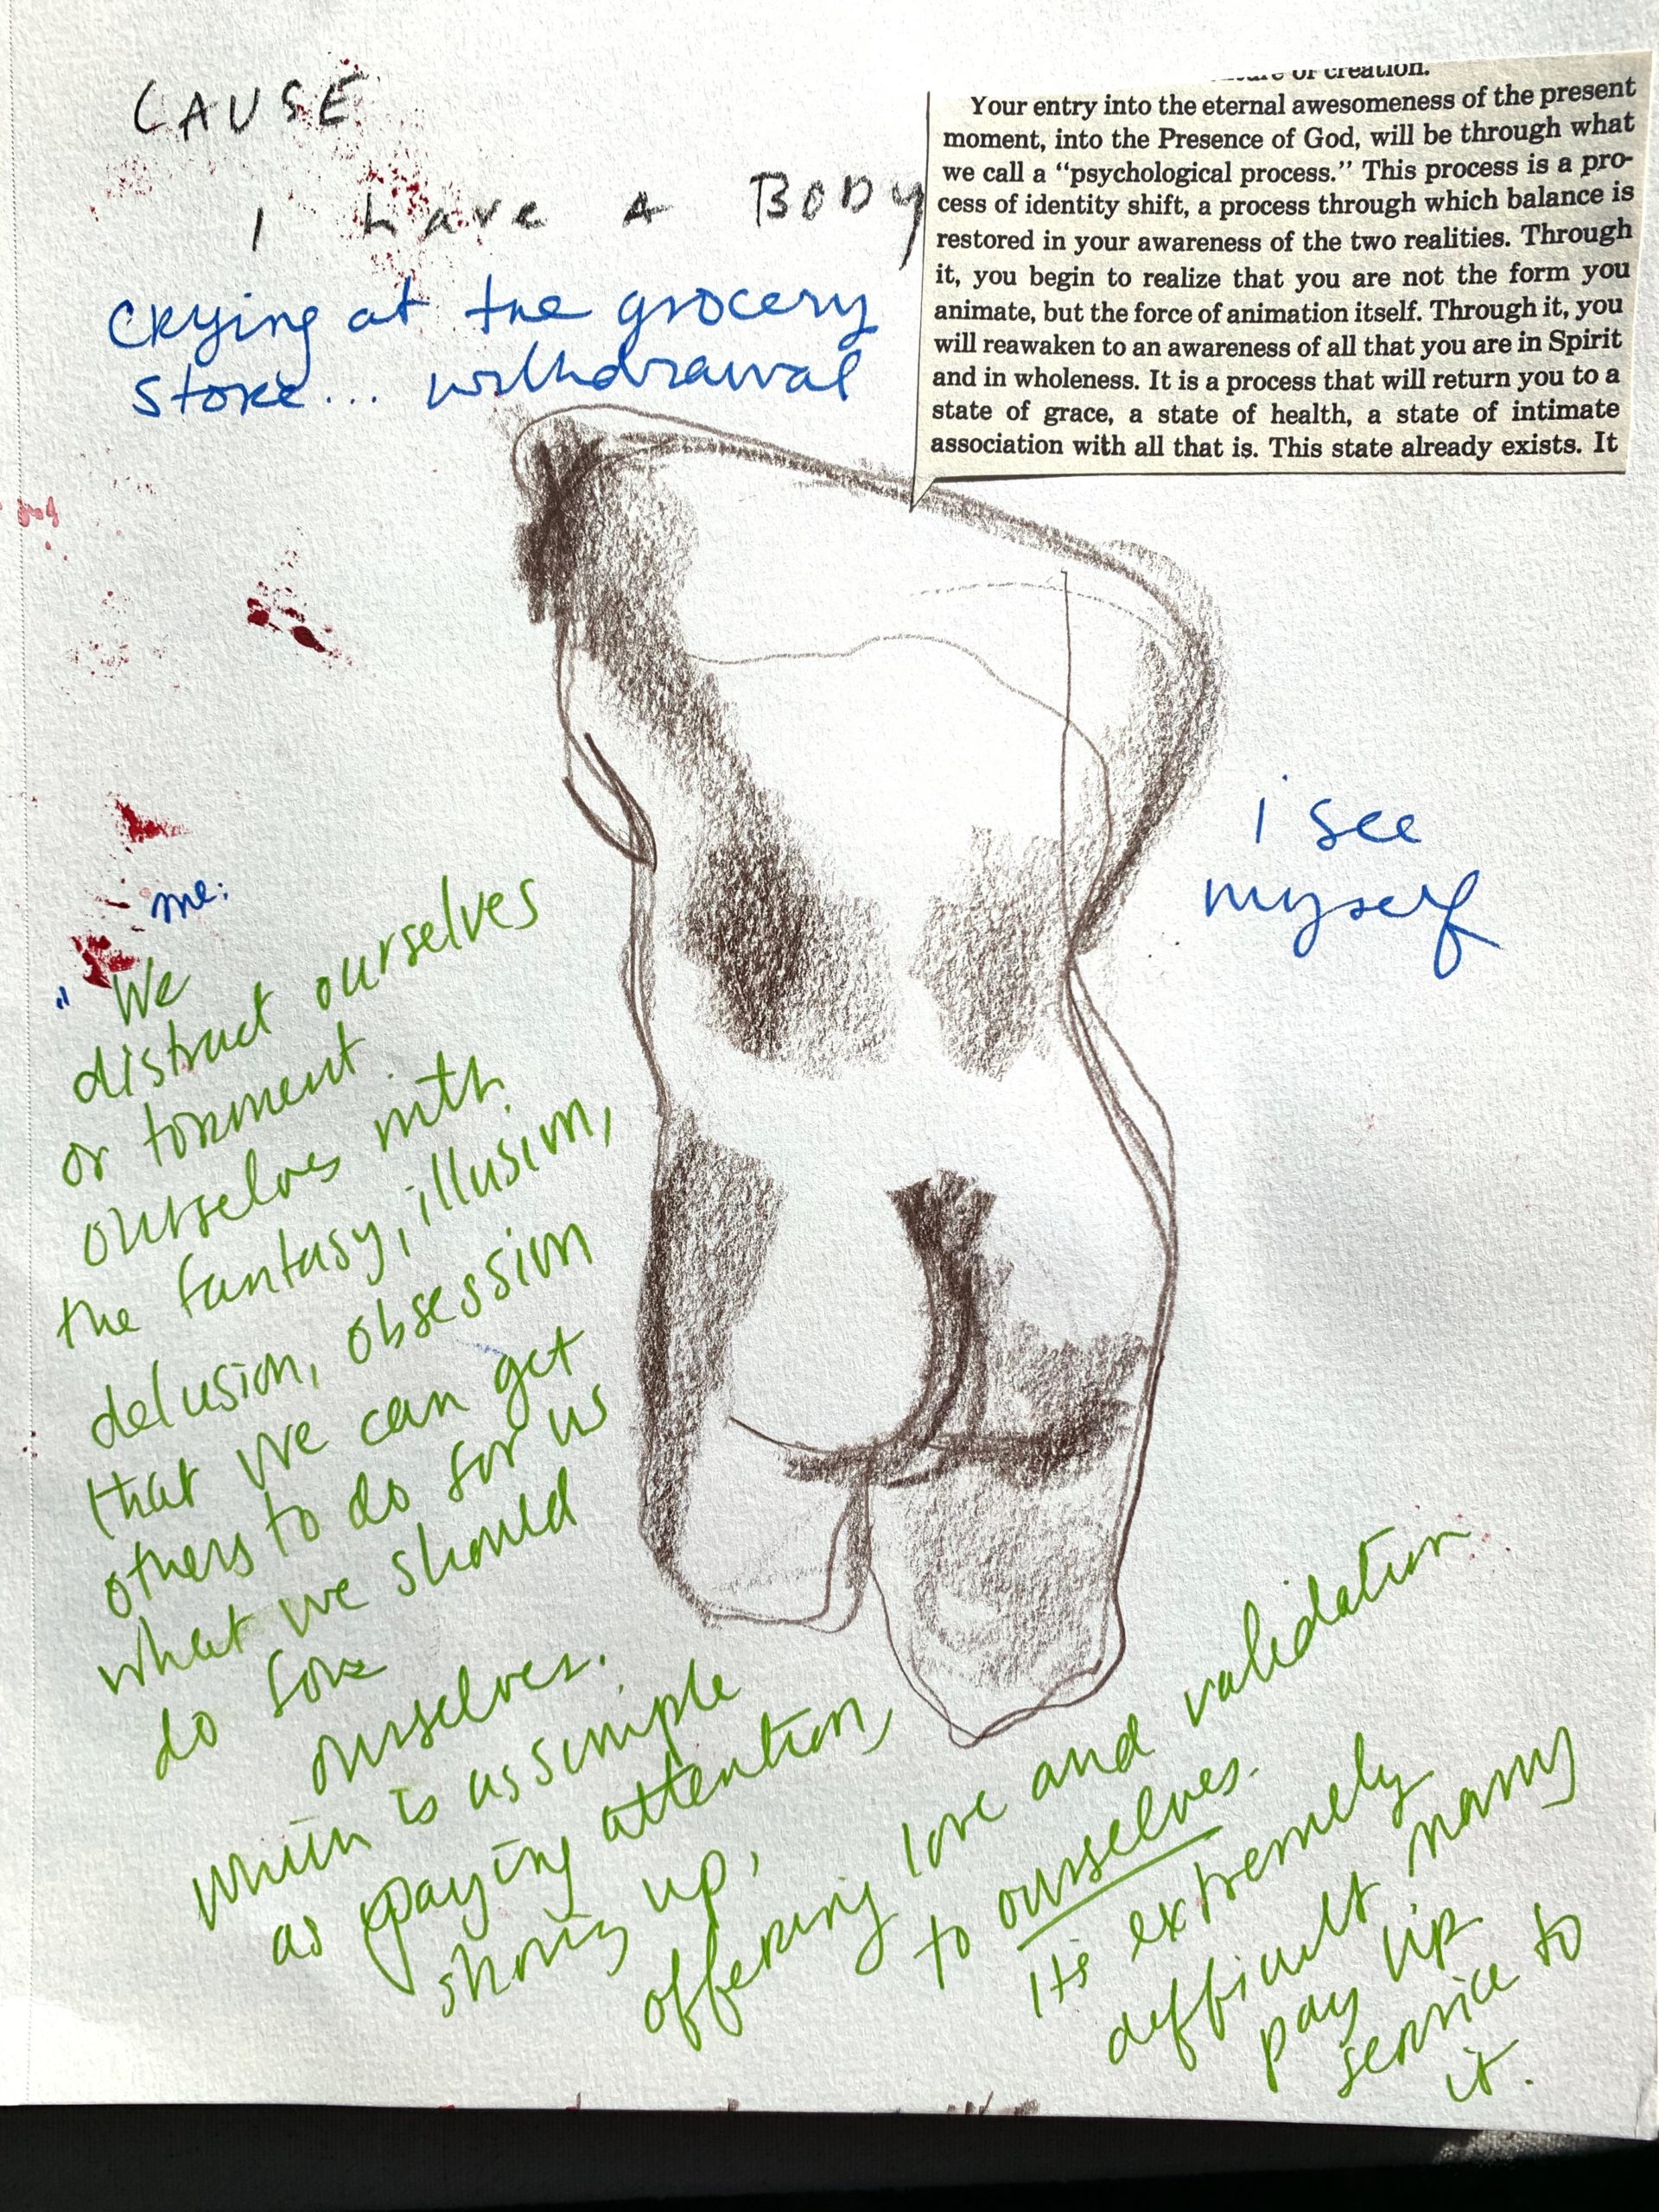 CAUSE
I have A BODY
crying at the grocery
store... withdrawal
Your entry into the eternal awesomeness of the present
moment, into the Presence of God, will be through what
we call a “psychological process.” This process is a pro-
cess of identity shift, a process through which balance is
restored in your awareness of the two realities. Through
it, you begin to realize that you are not the form you
animate, but the force of animation itself. Through it, you
will reawaken to an awareness of all that you are in Spirit
and in wholeness. It is a process that will return you to a
state of grace, a state of health, a state of intimate
association with all that is. This state already exists. It
of creation.
i see
myself
me:
" We
distract ourselves
or torment
ourselves with
the fantasy, illusion,
delusion, obsession
that we can get
others to do for us
what we should
do for
ourselves.
which is as simple
as paying attention,
showing up,
offering love and validation
to ourselves.
Its extremely
difficult many
pay lip
service to
it.